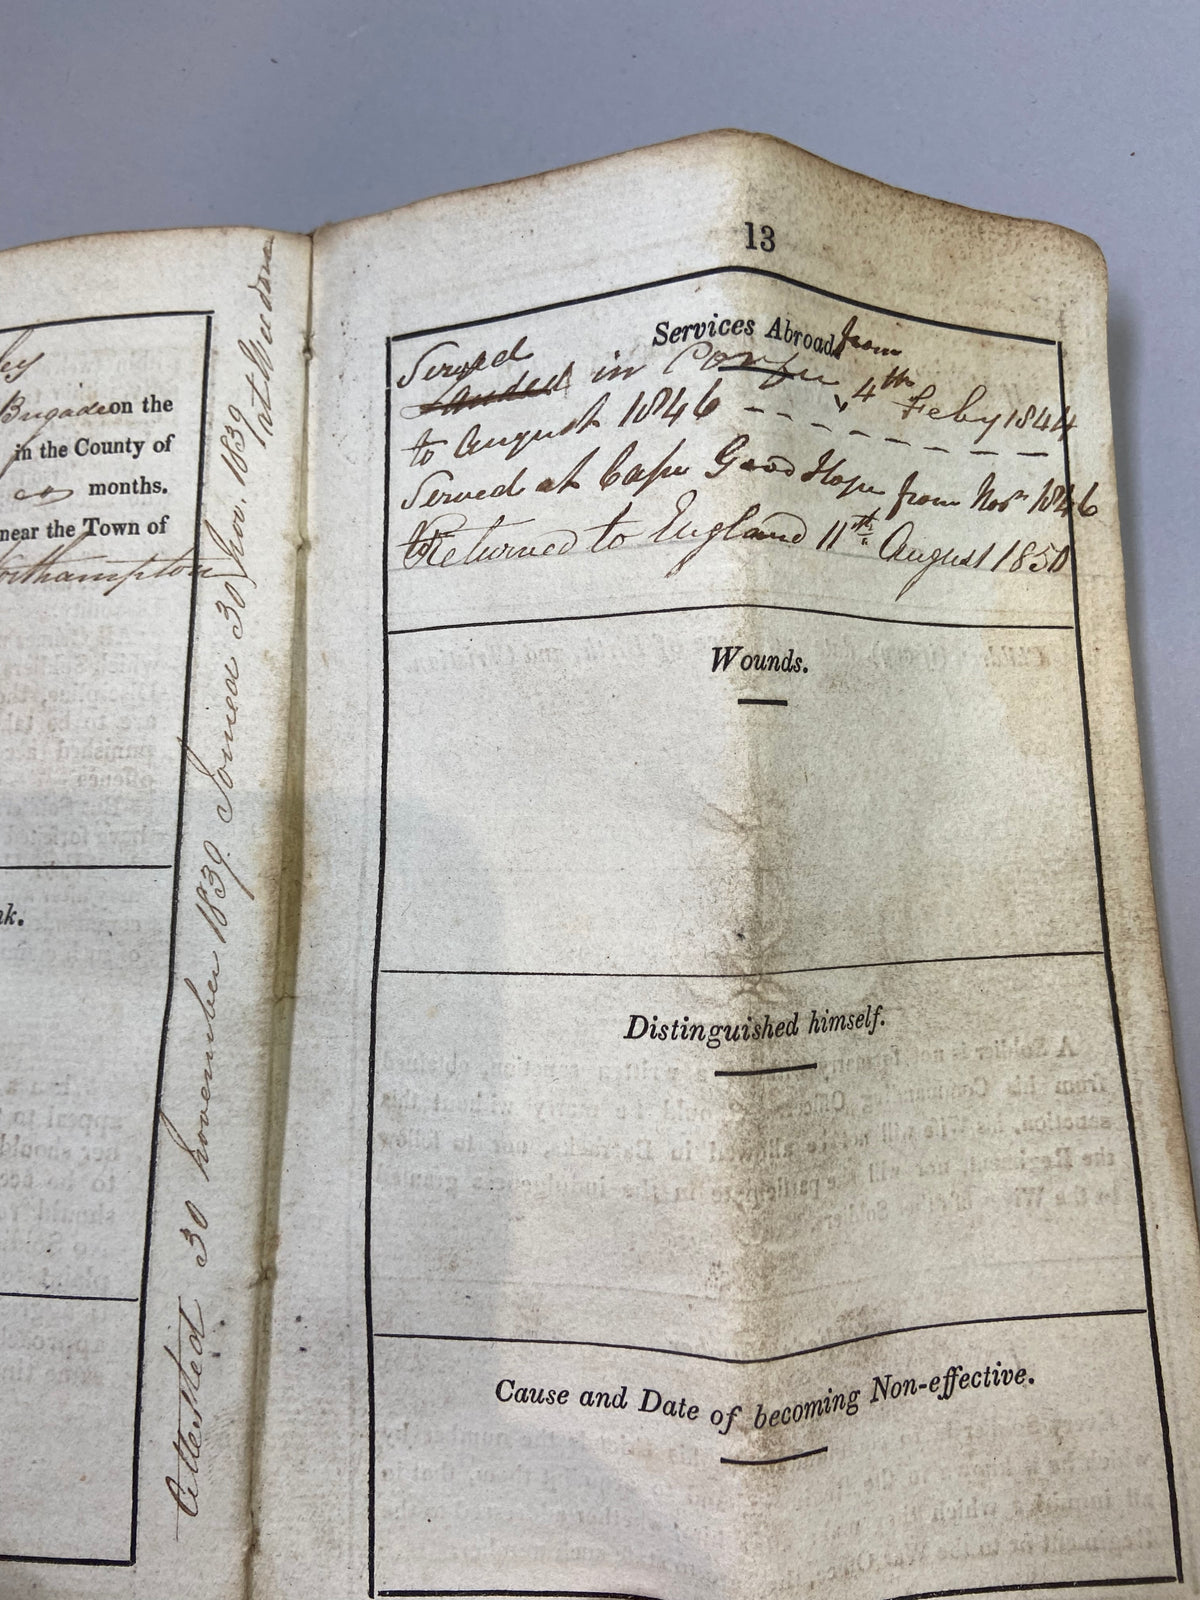 Brigade on the
in the County of
months.
near the Town of
Northampton
Attested 30 November 1839 Joined 30 Nov. 1839
at Weedon
13
Services Abroad.
Served from
Landed in Corfu 4th Feby 1844
to August 1846
Served at Cape Good Hope from Novr 1846
to Returned to England 11th August 1850
Wounds.
Distinguished himself.
Cause and Date of becoming Non-effective.